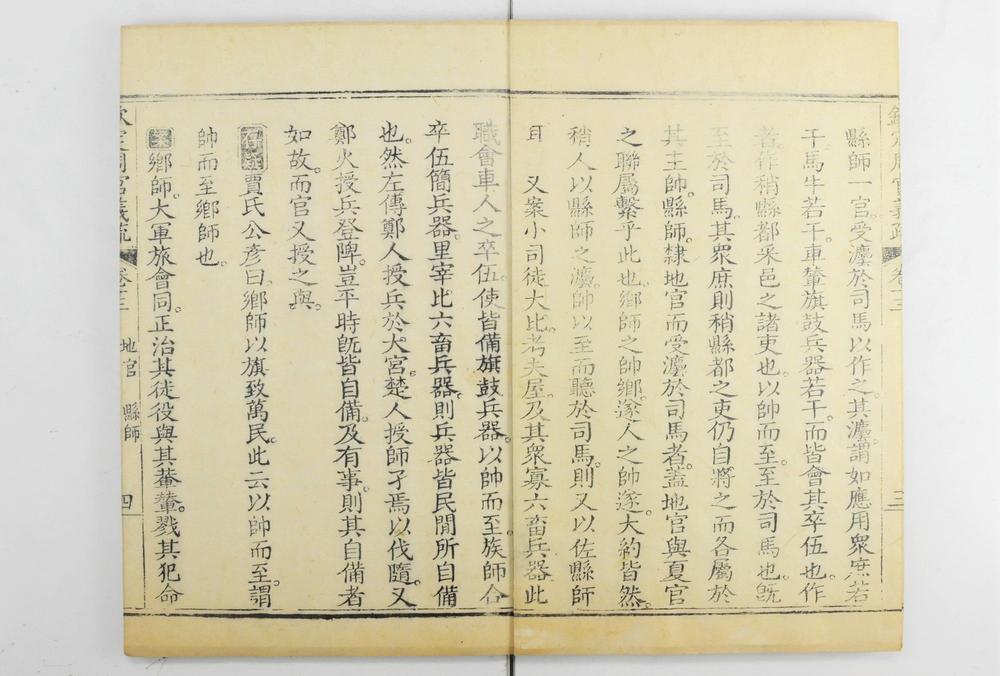 縣師一官受灋於司馬以作之其灋謂如應用衆庶若
干馬牛若干車輦旗鼓兵器若干而皆會其卒伍也作
者作稍縣都采邑之諸吏也以帥而至至於司馬也旣
至於司馬其衆庶則稍縣都之吏仍自將之而各屬於
其主帥縣師隸地官而受灋於司馬者蓋地官與夏官
之聯屬繫乎此也鄉師之帥鄉遂人之帥遂大約皆然
稍人以縣師之灋帥以至而聽於司馬則又以佐縣師
耳　又案小司徒大比考夫屋及其衆寡六畜兵器此
職會車人之卒伍使皆備旗鼓兵器以帥而至族師合
卒伍簡兵器里宰比六畜兵器則兵器皆民閒所自備
也然左傳鄭人授兵於大宮楚人授師孑焉以伐隨又
鄭火授兵登陴豈平時旣皆自備及有事則其自備者
如故而官又授之與
存疑賈氏公彥曰鄉師以旗致萬民此云以帥而至謂
帥而至鄉師也
案鄉師大軍旅會同正治其徒役與其輂輦戮其犯命
欽定周官義疏 卷十三 地官 縣師 四